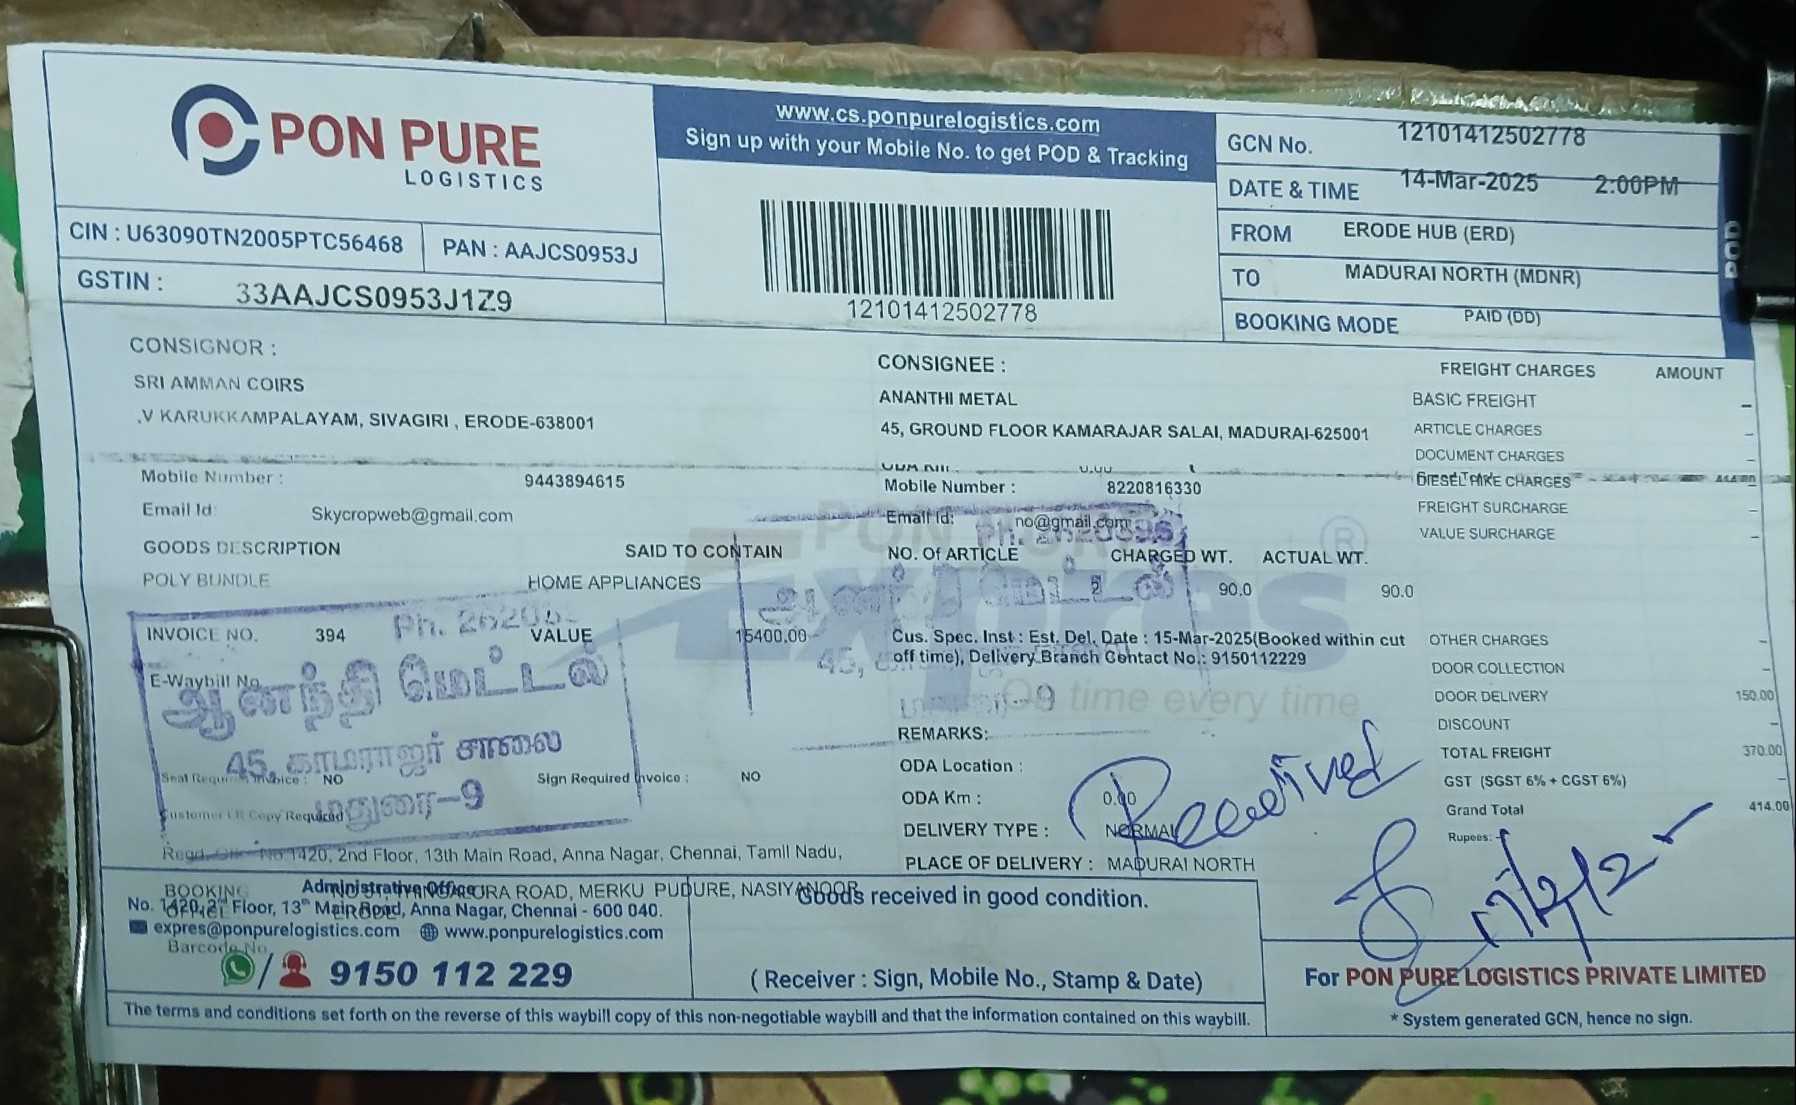 PON PURE
LOGISTICS
www.cs.ponpurelogistics.com
Sign up with your Mobile No. to get POD & Tracking
12101412502778
GCN No. 12101412502778
DATE & TIME 14-Mar-2025 2:00PM
FROM ERODE HUB (ERD)
TO MADURAI NORTH (MDNR)
BOOKING MODE PAID (DD)
POD
CIN : U63090TN2005PTC56468 PAN : AAJCS0953J
GSTIN : 33AAJCS0953J1Z9
CONSIGNOR :
SRI AMMAN COIRS
,V KARUKKAMPALAYAM, SIVAGIRI , ERODE-638001
Mobile Number : 9443894615
Email Id: Skycropweb@gmail.com
CONSIGNEE :
ANANTHI METAL
45, GROUND FLOOR KAMARAJAR SALAI, MADURAI-625001
Mobile Number : 8220816330
Email Id: no@gmail.com
FREIGHT CHARGES AMOUNT
BASIC FREIGHT –
ARTICLE CHARGES –
DOCUMENT CHARGES –
DIESEL HIKE CHARGES
FREIGHT SURCHARGE –
VALUE SURCHARGE –
GOODS DESCRIPTION SAID TO CONTAIN
POLY BUNDLE HOME APPLIANCES
NO. Of ARTICLE CHARGED WT. ACTUAL WT.
2 90.0 90.0
INVOICE NO. 394 VALUE 15400.00
E-Waybill No
Cus. Spec. Inst : Est. Del. Date : 15-Mar-2025(Booked within cut
off time), Delivery Branch Contact No.: 9150112229
ஆனந்தி மெட்டல்
45, காமராஜர் சாலை
மதுரை-9
Expres
On time every time
®
OTHER CHARGES –
DOOR COLLECTION –
DOOR DELIVERY 150.00
DISCOUNT –
TOTAL FREIGHT 370.00
GST (SGST 6% + CGST 6%) –
Grand Total 414.00
Rupees:
Seal Required Invoice : NO Sign Required Invoice : NO
Customer LR Copy Required
REMARKS:
ODA Location :
ODA Km : 0.00
DELIVERY TYPE : NORMAL
PLACE OF DELIVERY : MADURAI NORTH
Received
No 1420, 2nd Floor, 13th Main Road, Anna Nagar, Chennai, Tamil Nadu,
BOOKING OFFICE
ROAD, MERKU PUDURE, NASIYANOOR
ERODE
Administrative Office
No. 1420, 2nd Floor, 13th Main Road, Anna Nagar, Chennai - 600 040.
expres@ponpurelogistics.com www.ponpurelogistics.com
Barcode No
/ 9150 112 229
Goods received in good condition.
( Receiver : Sign, Mobile No., Stamp & Date)
For PON PURE LOGISTICS PRIVATE LIMITED
* System generated GCN, hence no sign.
The terms and conditions set forth on the reverse of this waybill copy of this non-negotiable waybill and that the information contained on this waybill.